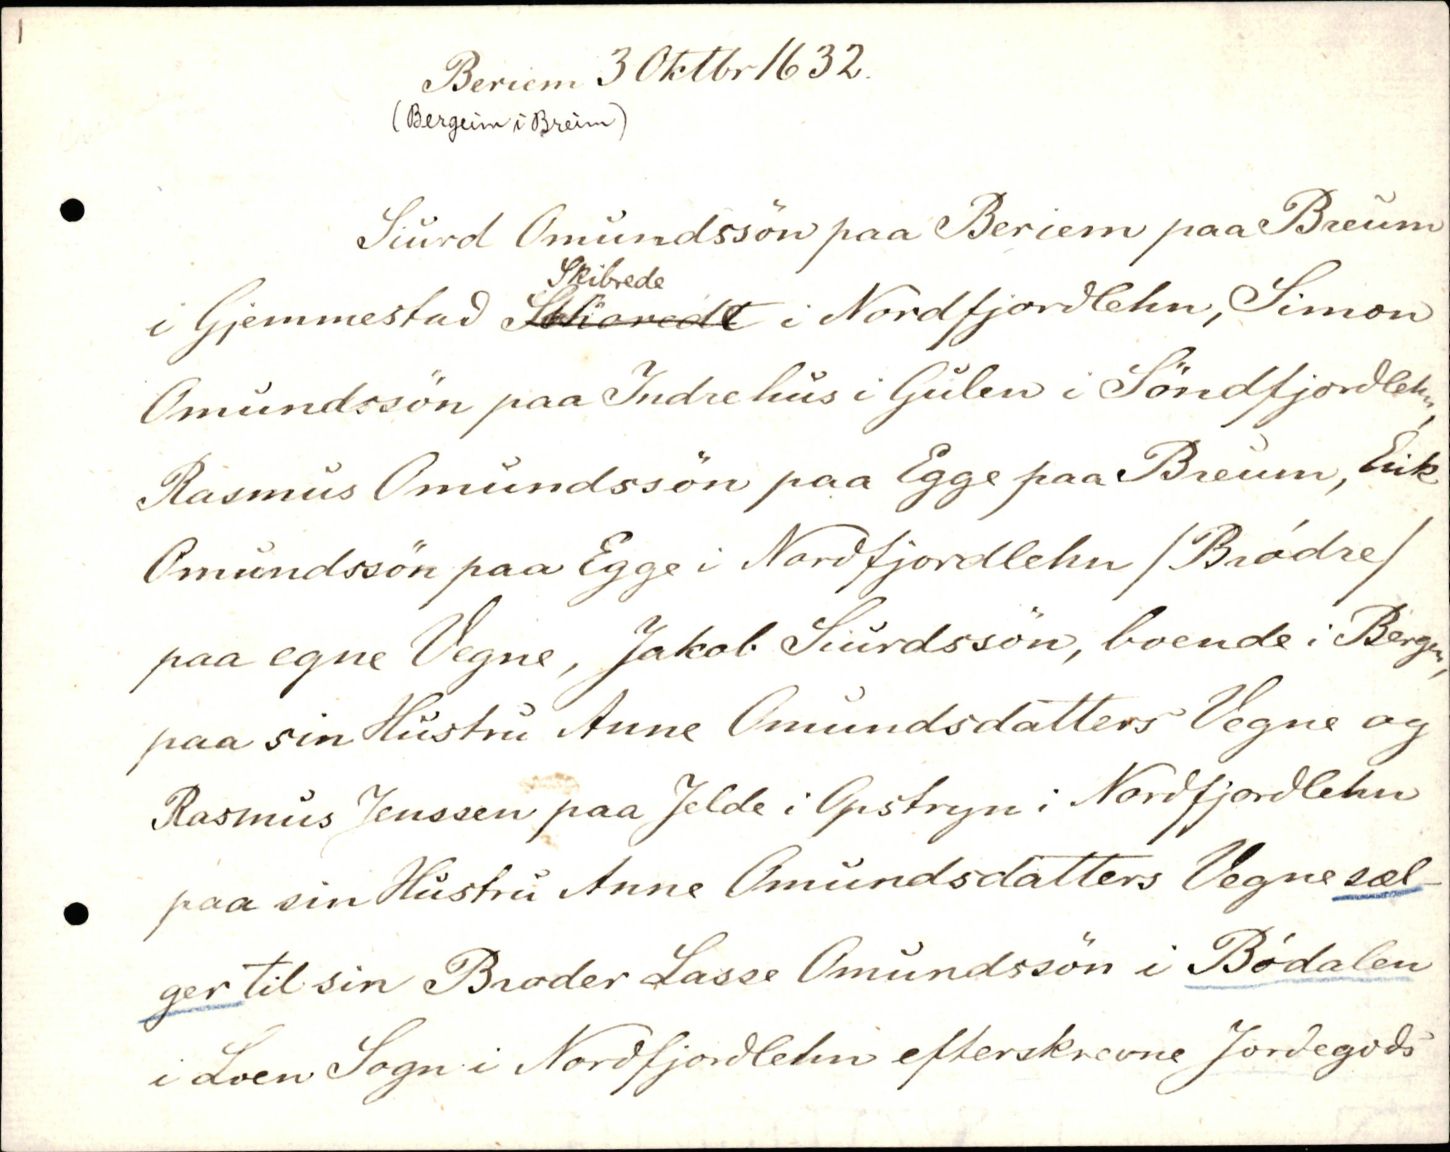 1
Beriem 3 Oktbr 1632.
(Bergeim i Breim)
Siurd Omundssön paa Beriem paa Breum
Skibrede
i Gjemmestad i Nordfjordlehn, Simon
Omundssön paa Indrehus i Gulen i Söndfjordlehn,
Rasmus Omundssön paa Egge paa Breum, Erik
Omundssön paa Egge i Nordfjordlehn /Brödre/
paa egne Vegne, Jakob Siurdssön, boende i Bergen,
paa sin Hustru Anne Omundsdatters Vegne og
Rasmus Jenssen paa Jelde i Opstryn i Nordfjordlehn
paa sin Hustru Anne Omundsdatters Vegne sæl-
ger til sin Broder Lasse Omundssön i Bödalen
i Loen Sogn i Nordfjordlehn efterskrevne Jordegods